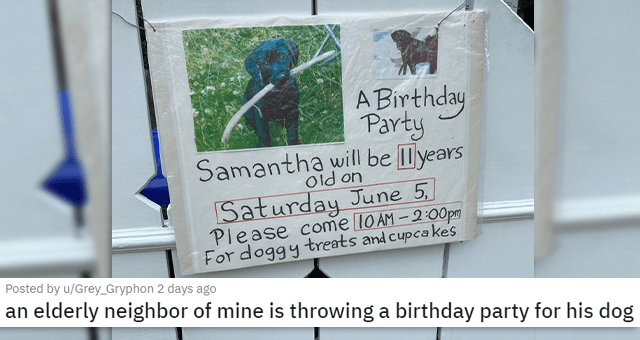 A Birthday
Party
Samantha will be 11 years
old on
Saturday June 5,
Please come 10 AM - 2:00pm
For doggy treats and cupcakes
Posted by u/Grey_Gryphon 2 days ago
an elderly neighbor of mine is throwing a birthday party for his dog